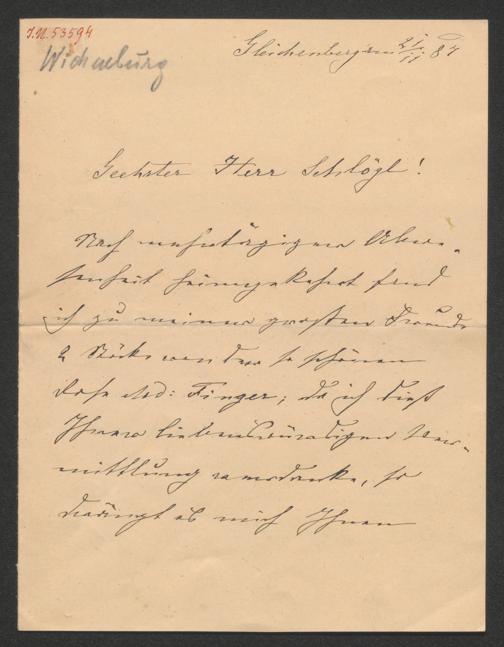 I.N. 53594
Wickenburg
Gleichenberg am 21/11 87
Geehrter Herr Schlögl!
Nach mehrtägiger Abwe-
senheit heimgekehrt fand
ich zu meiner großen Freude
2 Stöcke von der so schönen
Rose Mad: Finger; da ich dieß
Ihrer liebenswürdigen Ver-
mittlung verdanke, so
drängt es mich Ihnen